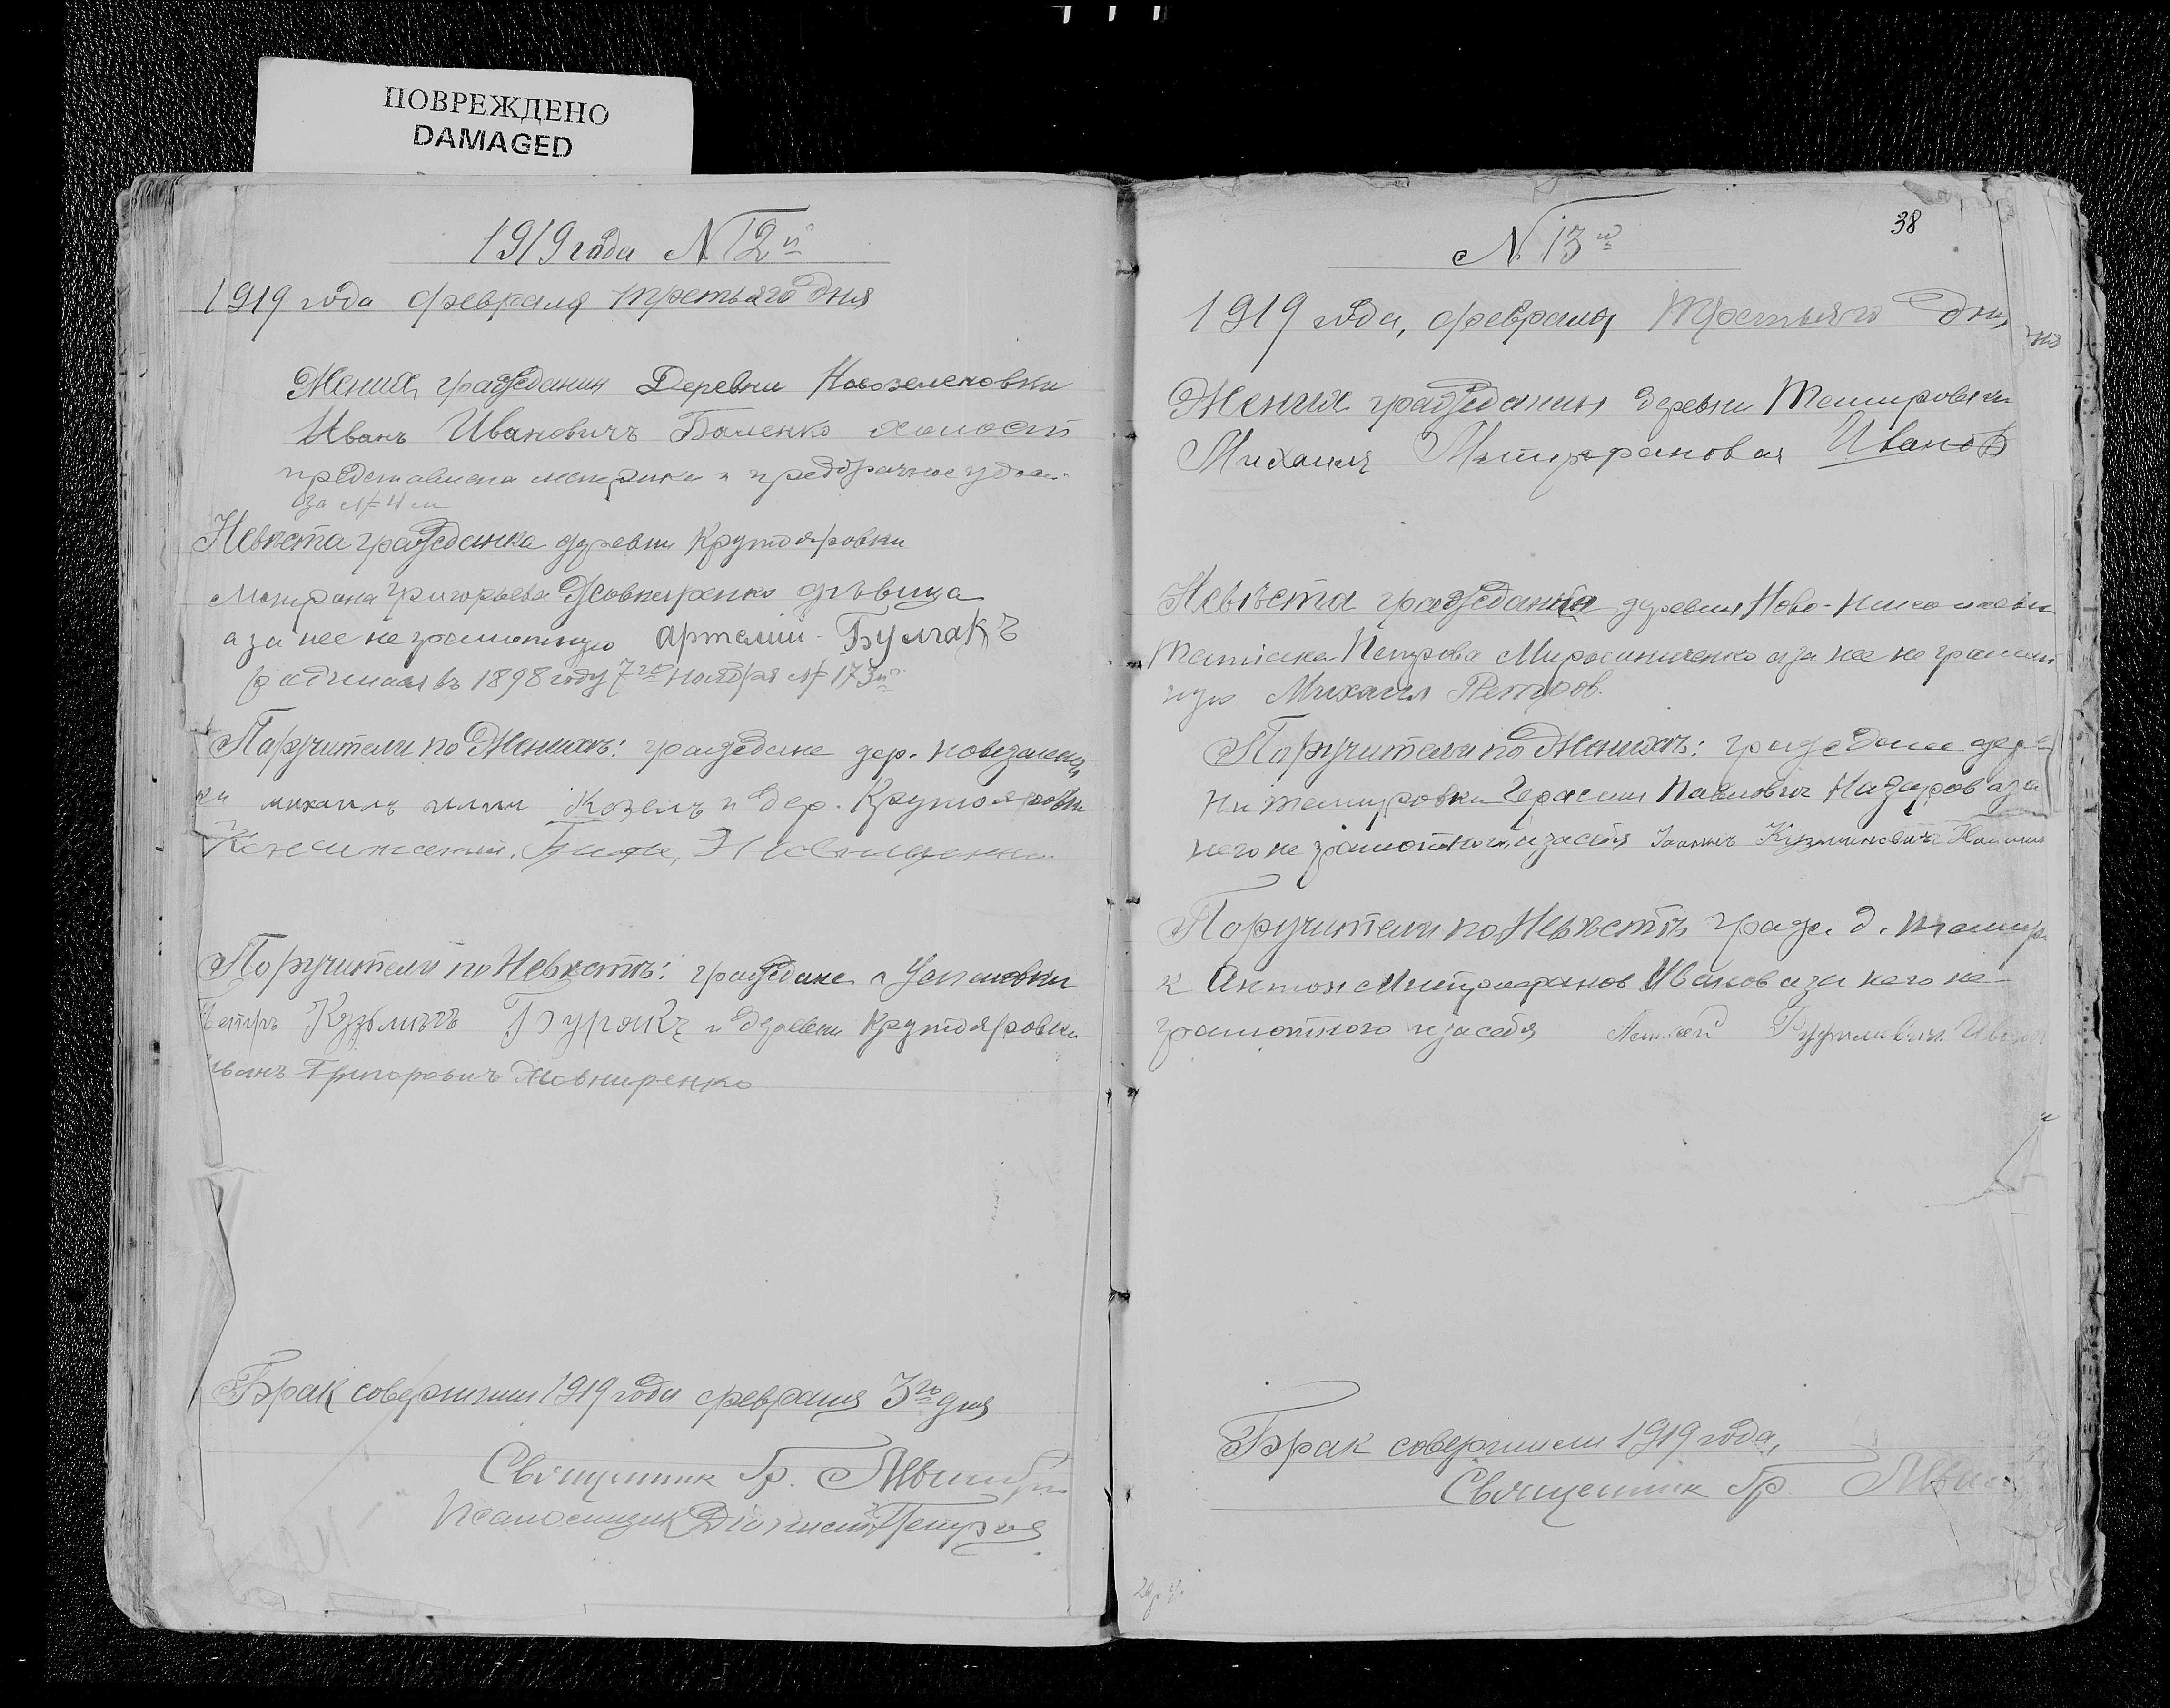 ПОВРЕЖДЕНО
DAMAGED
1919 года N 12й
1919 года февраля третьяго дня
Жених гражданин Деревни Новозеленовки
Иванъ Ивановичъ Баленко холост
представлена метрика и предбрачное
за № 4 м
Невѣста гражданка деревни Крутояровки
Матрона Григорьева Жовниренко дѣвица
а за нее неграмотную Артемiй Булгакъ
родилась въ 1898 году 7го ноября № 173й
Поручители по Женихѣ: граждане дер.
ки михаилъ Козелъ и дер. Крутояровки
Поручители по Невѣстѣ: граждане
Петръ Кузьмичъ Буракъ и деревни Крутояровки
Иванъ Григоревичъ Жовниренко
Брак совершили 1919 года февраля 3го дня
Священник Гр.
Псаломщик Дiонисiй Петров
38
N 13й
1919 года, февраля Третьяго дня
Жених гражданин деревни Темировки
Михаил Митрофанович Иванов
Невѣста гражданка деревни Ново-
Татiана Петрова Мирошниченко а за нее неграмот
ную Михаил Петров.
Поручители по Женихѣ: граждане дерев
ни темировки Герасим Павлович Назаров а за
него неграмотного и за себя Iоаннъ Кузминович
Поручители по Невѣстѣ граж. д. темир
к Антон Митрофанов Иванов а за него не-
грамотного и за себя
Брак совершили 1919 года,
Священник Гр.